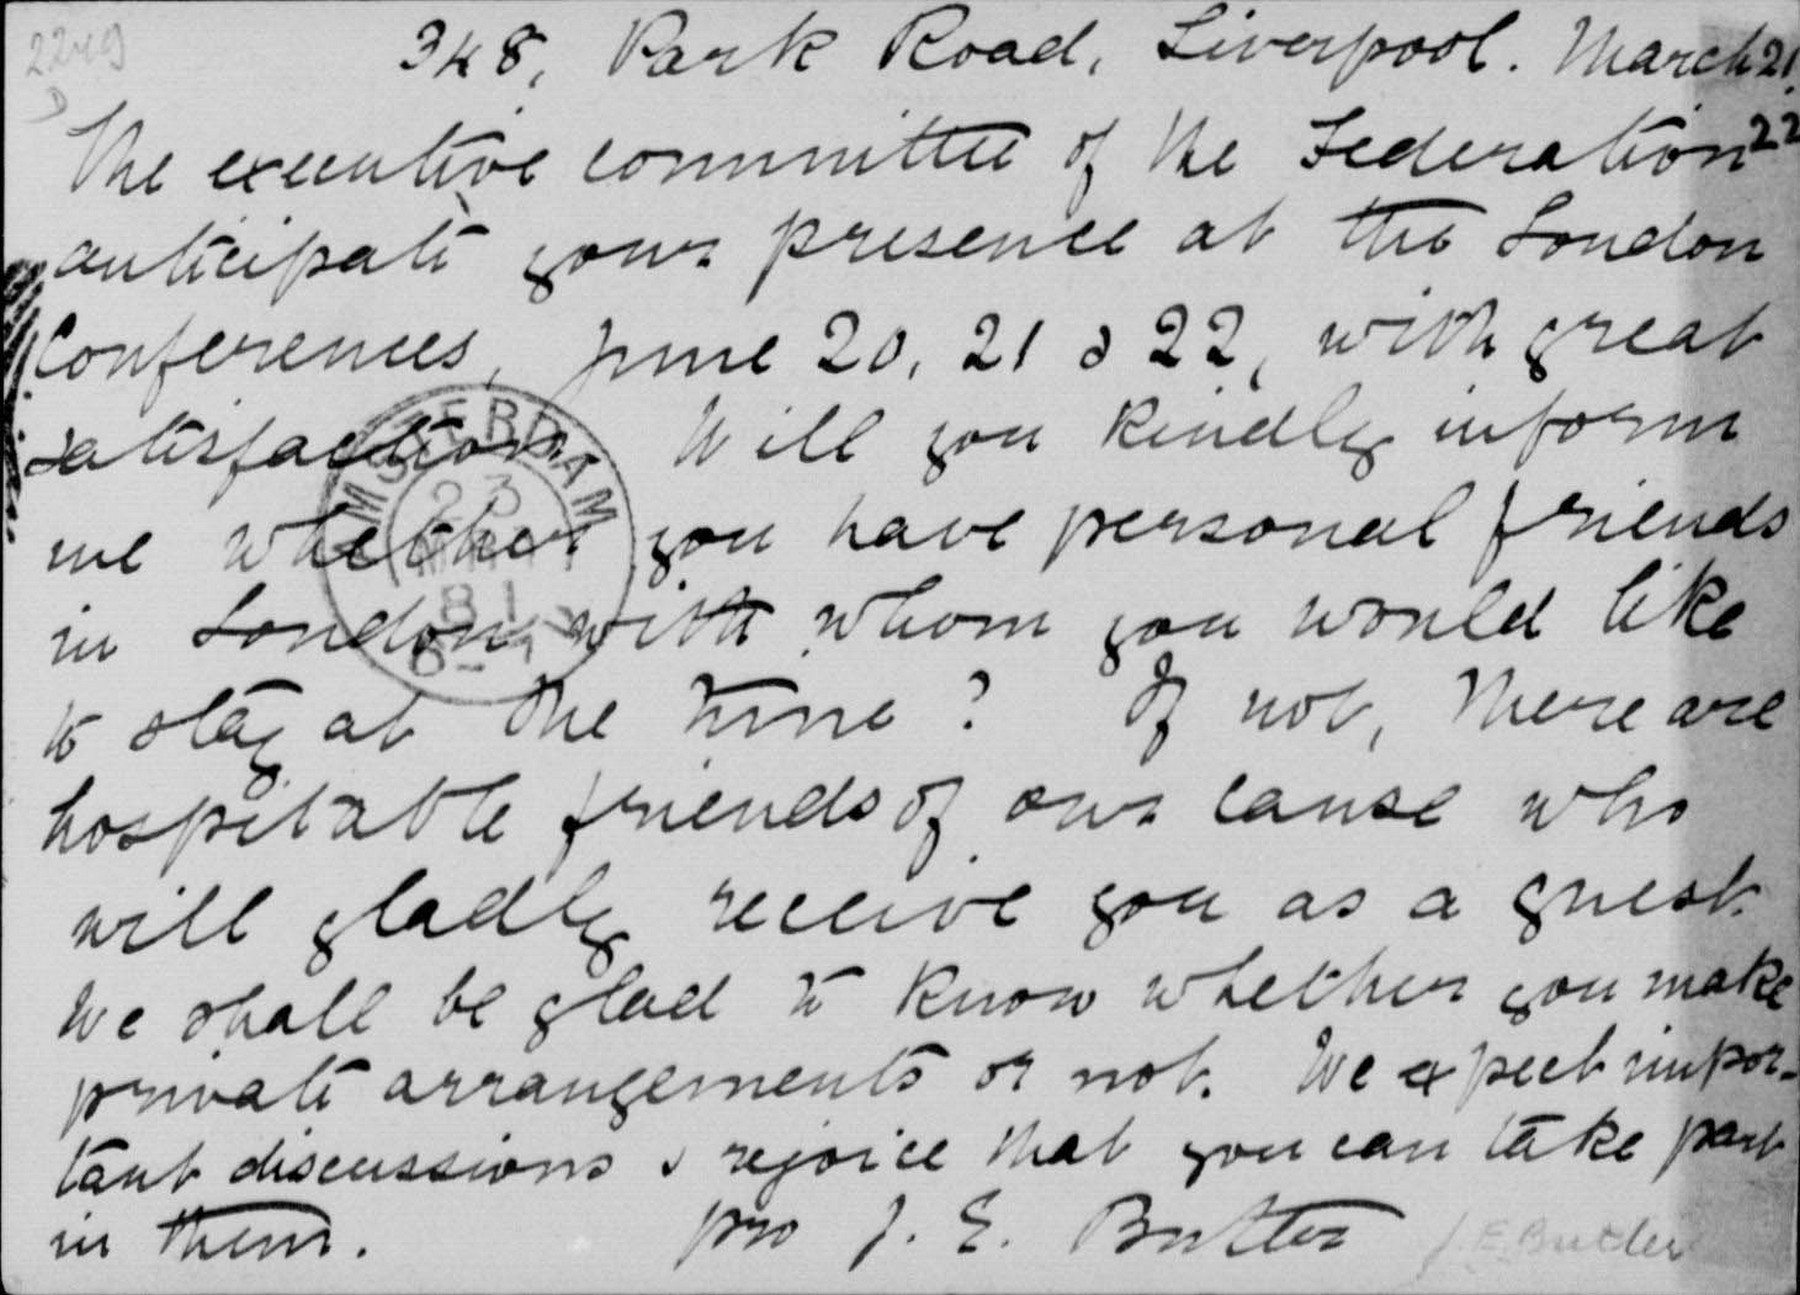 2249
D
348, Park Road, Liverpool. March 21.
22
The executive committee of the Federation
anticipate your presence at the London
Conferences, June 20, 21 & 22, with great
satisfaction. Will you kindly inform
me whether you have personal friends
in London with whom you would like
to stay at the time? If not, there are
hospitable friends of our cause who
will gladly receive you as a guest.
We shall be glad to know whether you make
private arrangements or not. We expect impor-
tant discussions & rejoice that you can take part
in them. pro J. E. Butler J. E. Butler
AMSTERDAM
23
81